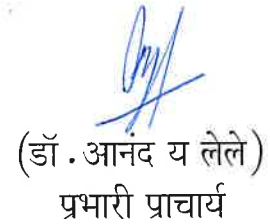 (डॉ. आनंद य लेले)
प्रभारी प्राचार्य